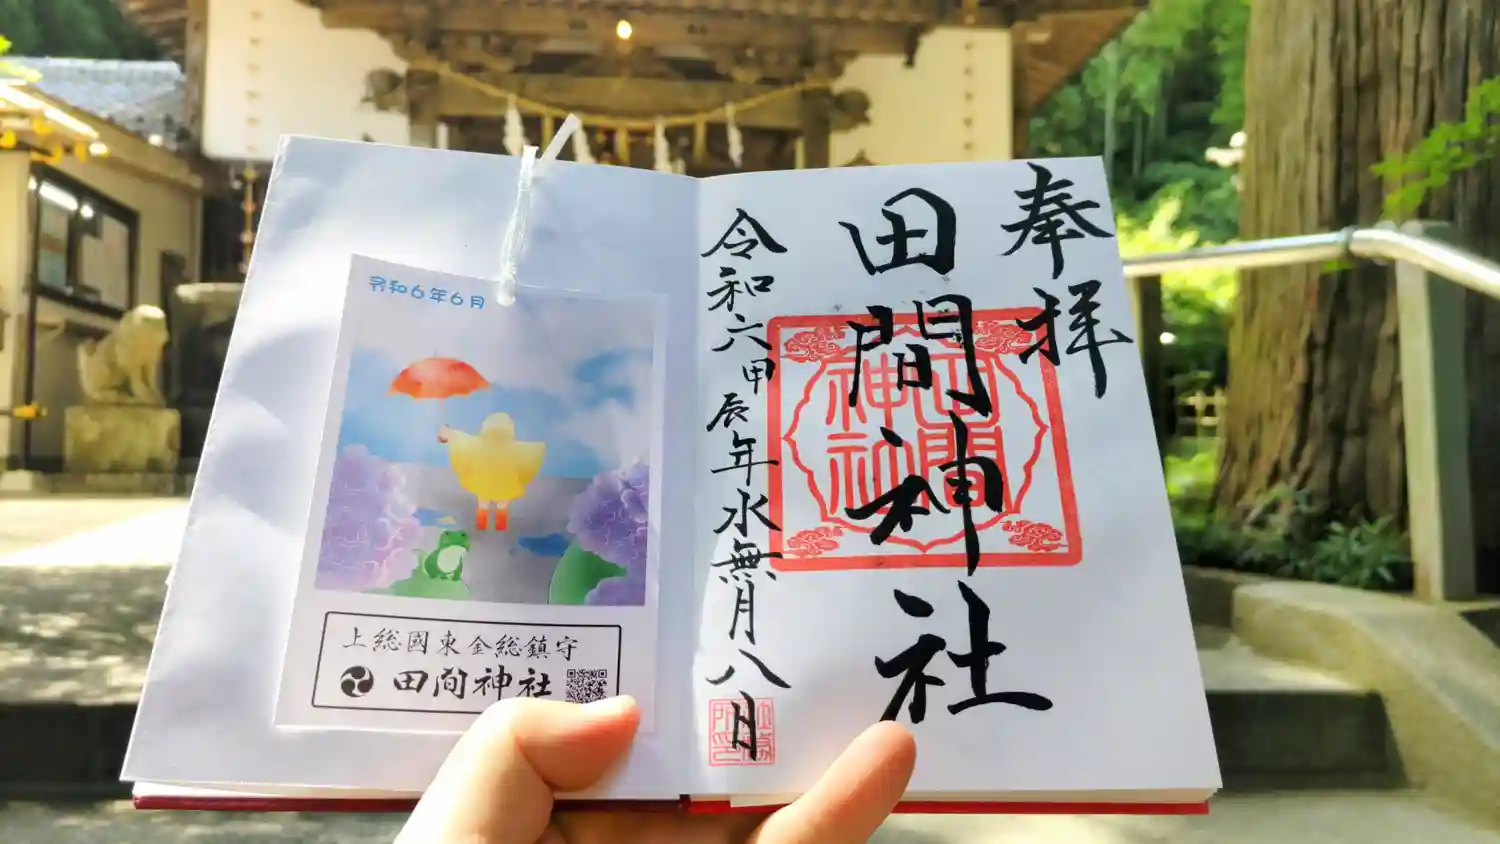 奉拝
田間神社
田間
神社
令和六甲辰年水無月八日
令和6年6月
上総國東金総鎮守
田間神社